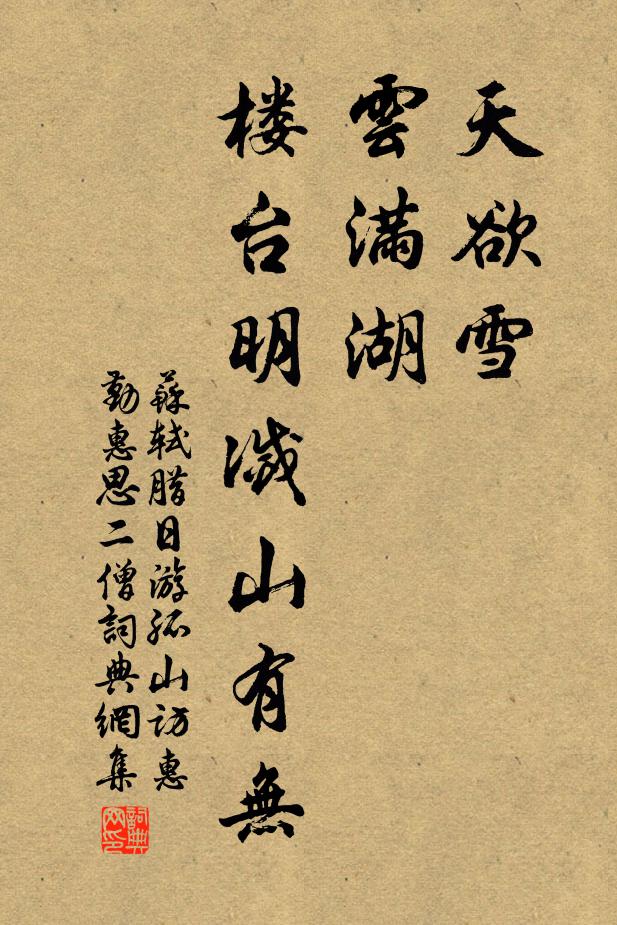 天欲雪
雲满湖
楼台明滅山有無
蘇軾腊日游孤山访惠
勤惠思二僧詞典網集
詞典网印